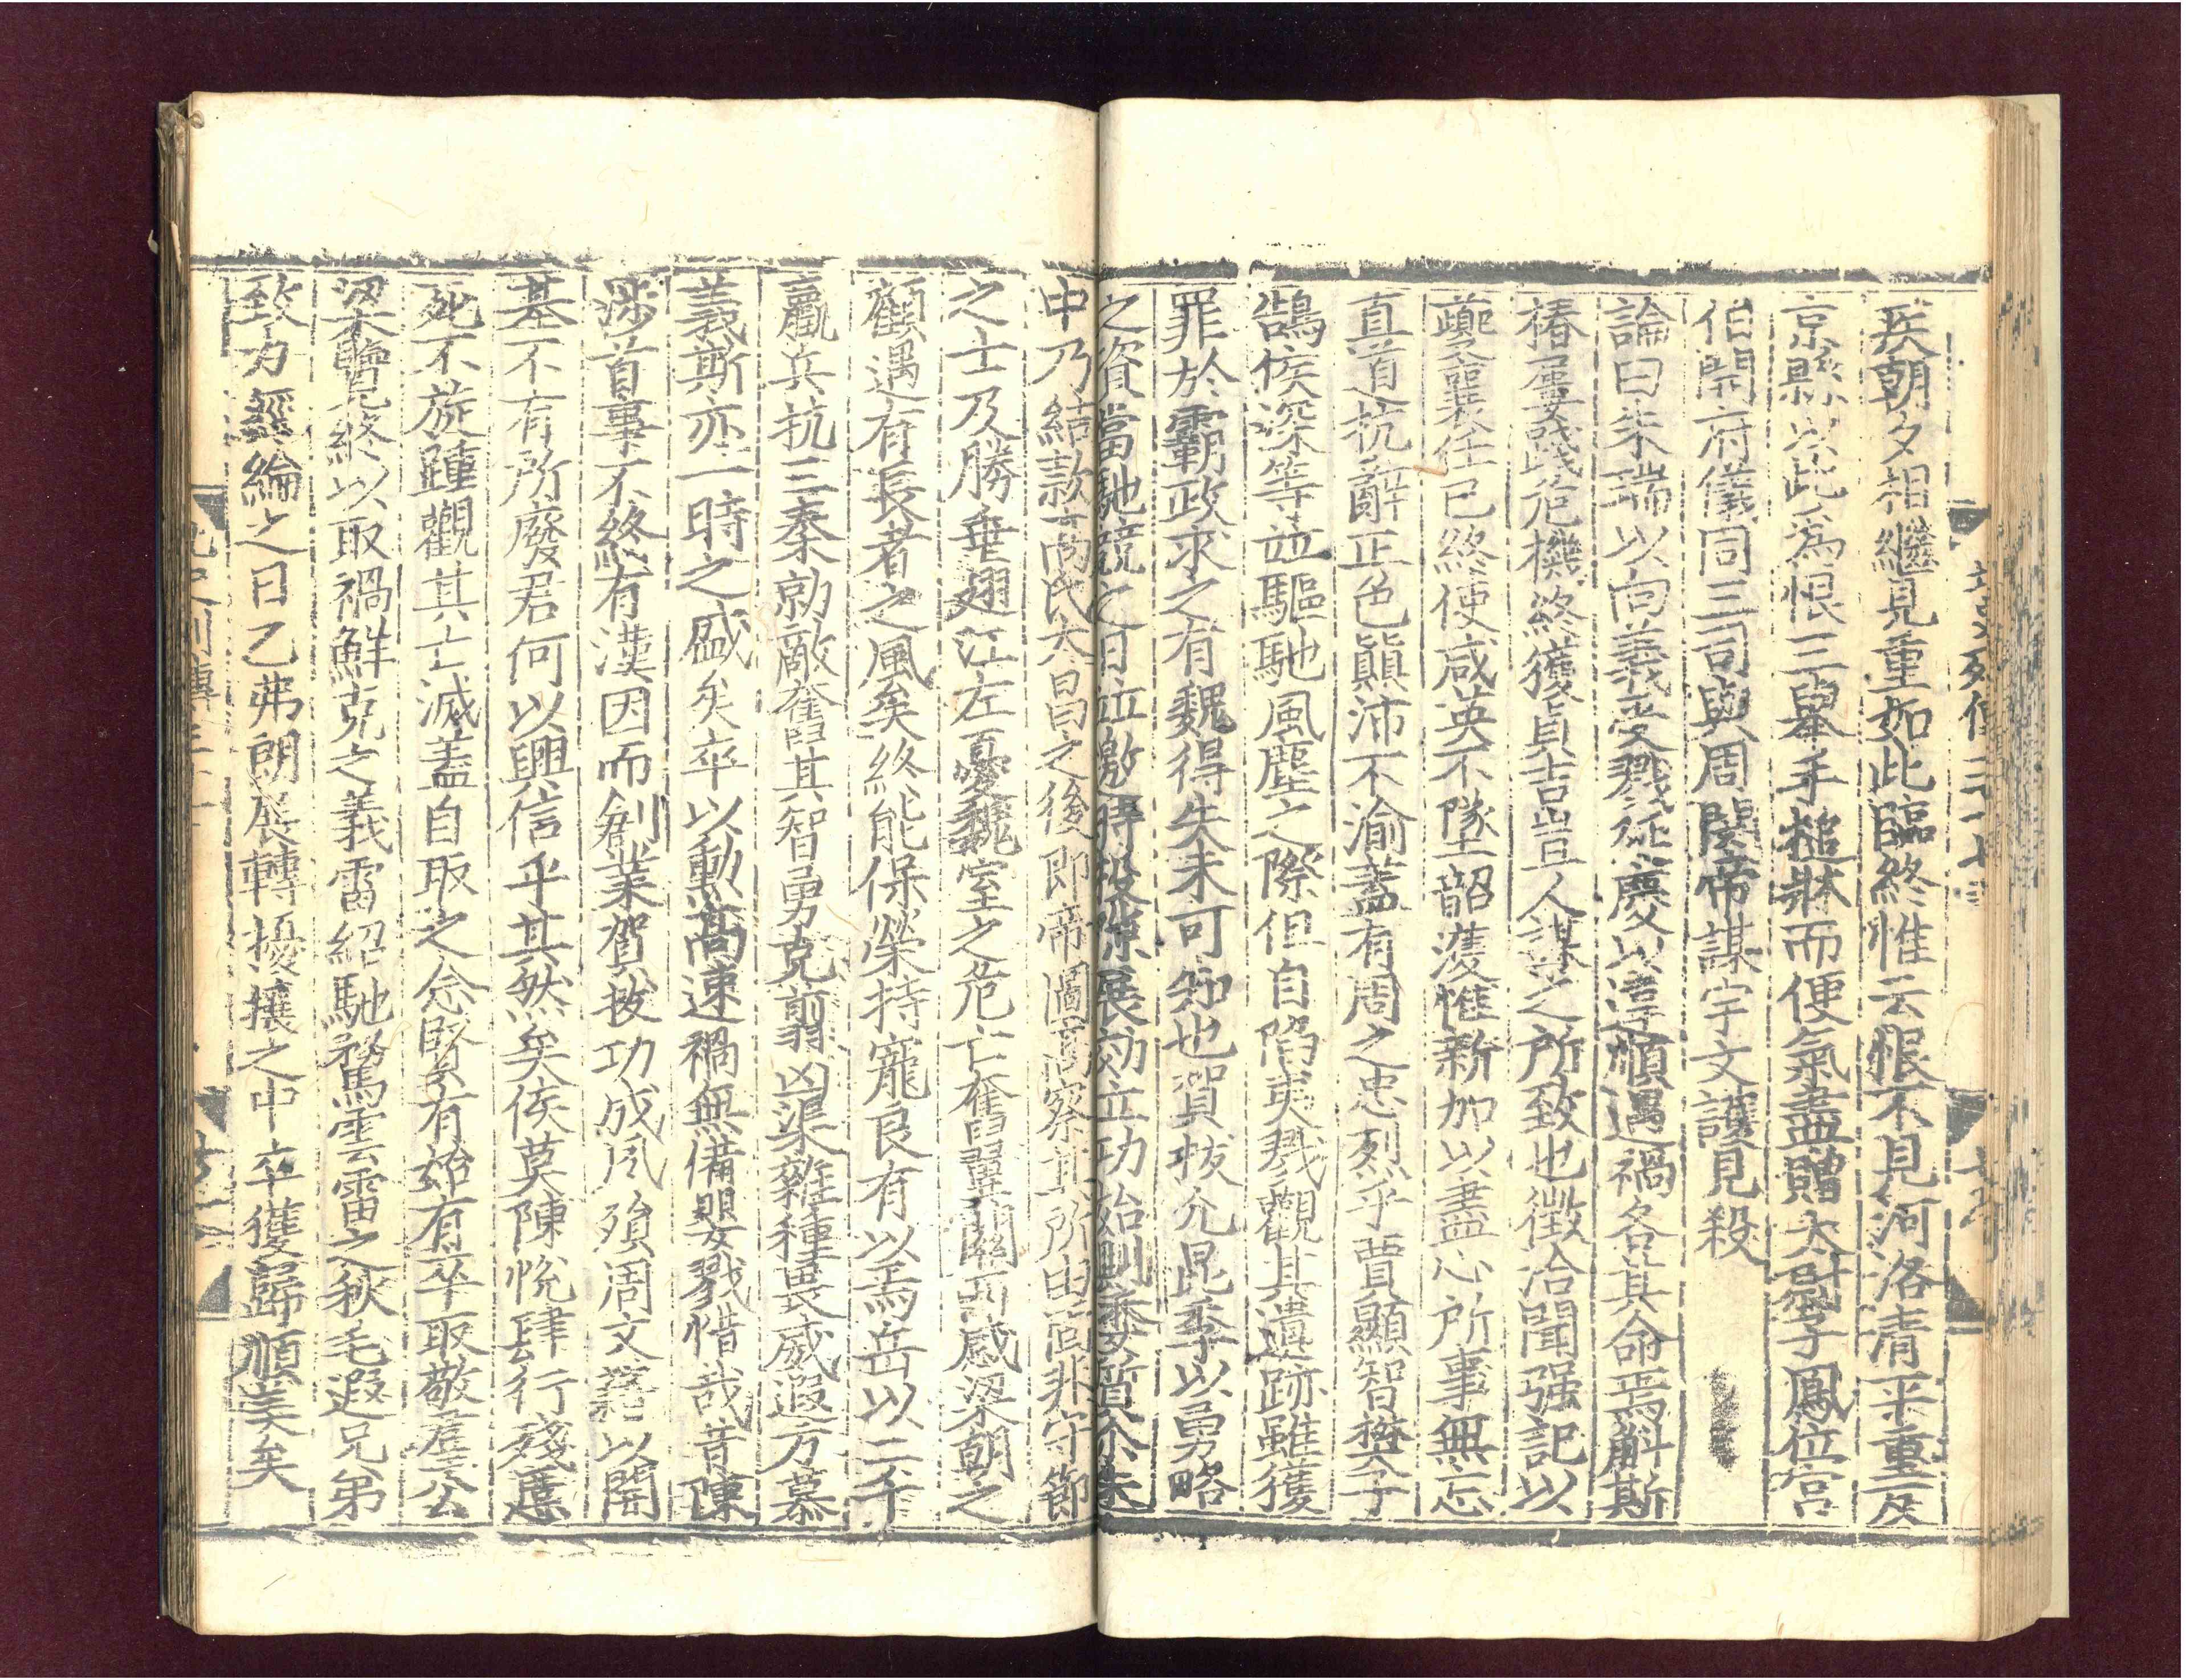 疾朝夕相繼見重如此臨終惟云恨不見河洛清平重反
京縣以此為恨三舉手搥牀而便氣盡贈太尉子鳳位宮
伯開府儀同三司與周閔帝謀宇文護見殺
論曰朱瑞以向義受戮延慶以淳順遇禍各其命焉斛斯
椿屢踐危機終獲貞吉豈人謀之所致也徵洽聞强記以
夔襄任已終使咸英不墜韶濩惟新加以盡心所事無忘
直道抗辭正色顛沛不渝蓋有周之忠烈乎賈顯智樊子
鵠侯深等並驅馳風塵之際但自陷夷戮觀其遺跡雖獲
罪於霸政求之有魏得失未可知也賀拔允昆季以勇略
之資當馳競之日並邀時投隙展効立功始則委質介朱
中乃結款高氏太昌之後即帝圖高察其所由固非守節
之士及勝垂翅江左憂魏室之危亡奮翼關西感梁朝之
顧遇有長者之風矣終能保榮持寵良有以焉岳以二千
羸兵抗三秦勍敵奮其智勇克剪凶渠雜種畏威遐方慕
義斯亦一時之盛矣卒以勳高速禍無備嬰戮惜哉昔陳
涉首事不終有漢因而創業賀拔功成夙殞周文藉以開
基不有所廢君何以興信乎其然矣侯莫陳悅肆行殘慝
死不旋踵觀其亡滅蓋自取之念賢有始有卒取敬羣公
梁覽終以取禍鮮克之義雷紹馳騖雲雷之秋毛遐兄弟
致力經綸之日乙弗朗展轉擾攘之中卒獲歸順美矣